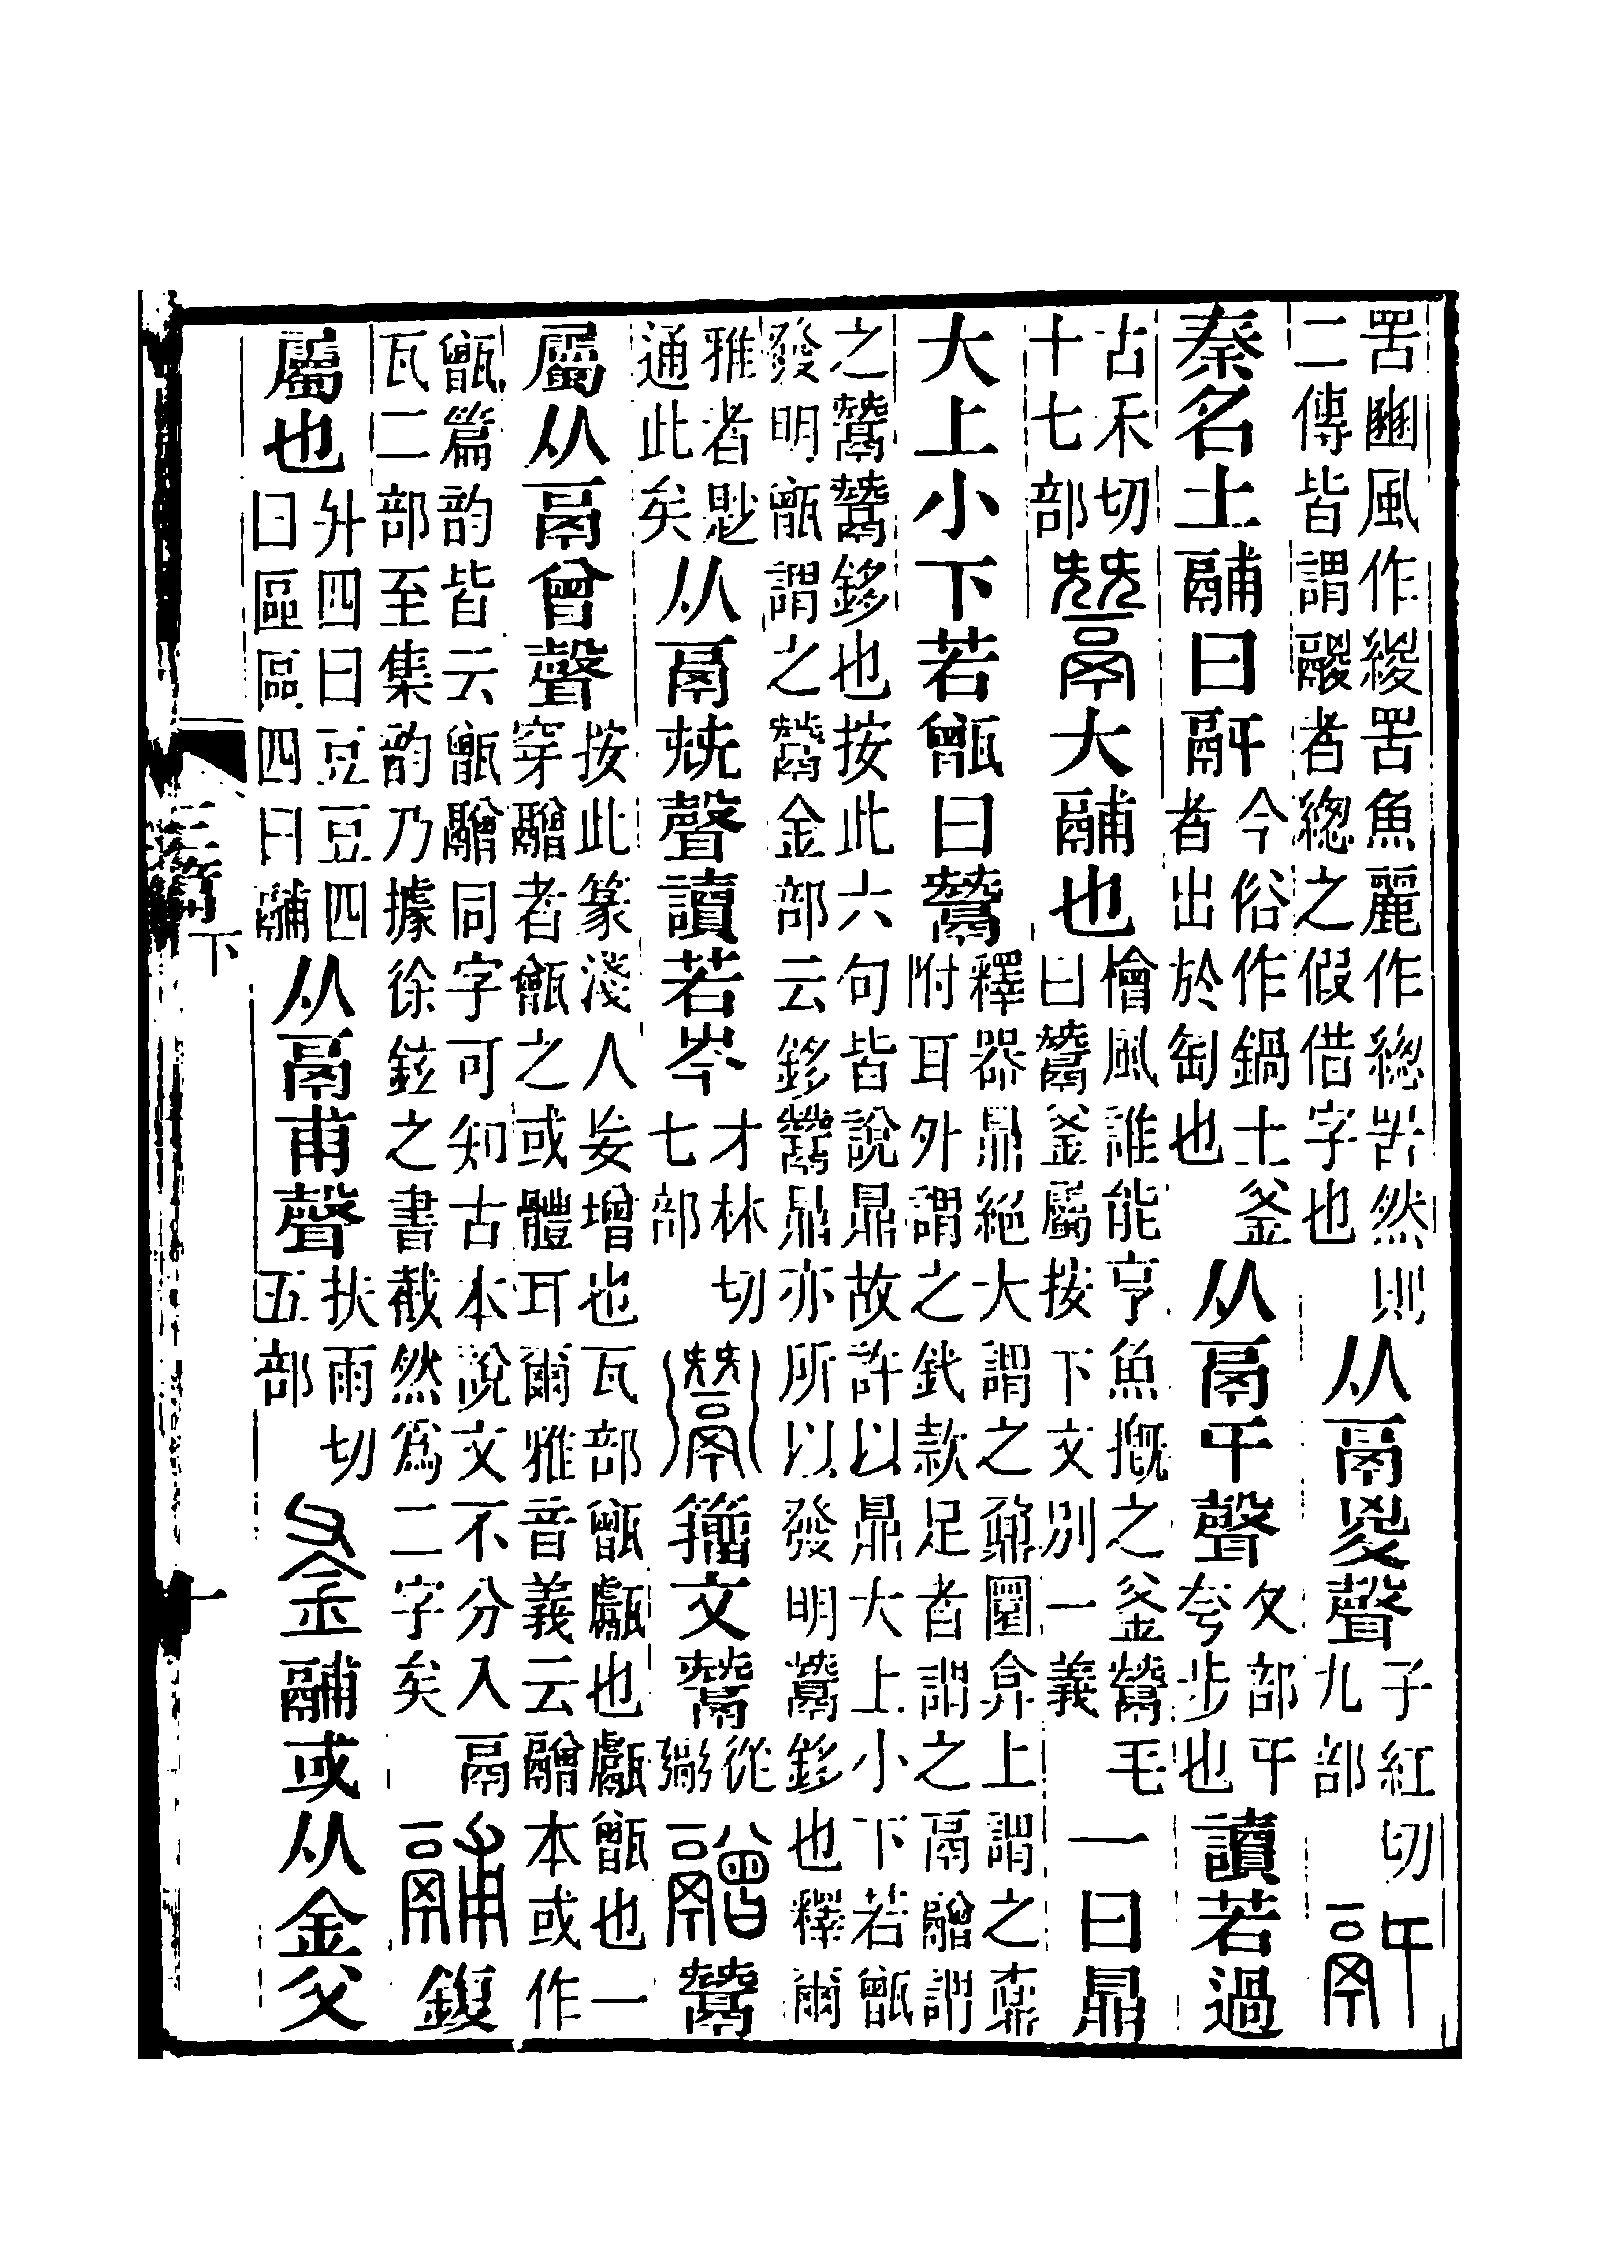 罟豳風作緵罟魚麗作緫罟然則
二傳皆謂鬷者緫之假借字也
从鬲㚇聲
子紅切
九部
䰛
秦名土鬴曰䰛
今俗作鍋土釜
者出於匋也
从鬲㐄聲
夂部㐄
夸步也
讀若過
古禾切
十七部
鬵
大鬴也
檜風誰能亨魚摡之釜鬵毛
曰鬵釜屬按下文別一義
一曰鼎
大上小下若甑曰鬵
釋器鼎絕大謂之鼐圜弇上謂之鼒
附耳外謂之釴款足者謂之鬲䰝謂
之鬵鬵鉹也按此六句皆說鼎故許以鼎大上小下若甑
發明甑謂之鬵金部云鉹鬵鼎亦所以發明鬵鉹也釋爾
雅者尟
通此矣
从鬲兓聲讀若岑
才林切
七部
籒文鬵
從
䰜
䰝
鬵
屬从鬲曾聲
按此篆淺人妄增也瓦部甑甗也甗甑也一
穿䰝者甑之或體耳爾雅音義云䰝本或作
甑篇韵皆云甑䰝同字可知古本說文不分入鬲
瓦二部至集韵乃據徐鉉之書截然爲二字矣
鬴
鍑
屬也
升四曰豆豆四
曰區區四曰鬴
从鬲甫聲
扶雨切
五部
釜
鬴或从金父
三篇下